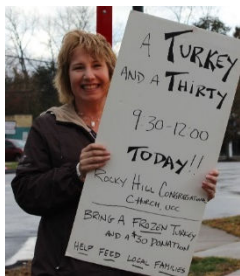 A TURKEY
AND A THIRTY
9:30-12:00
TODAY!!
ROCKY HILL CONGREGATIONAL
CHURCH, UCC
BRING A FROZEN TURKEY
AND A $30 DONATION
HELP FEED LOCAL FAMILIES